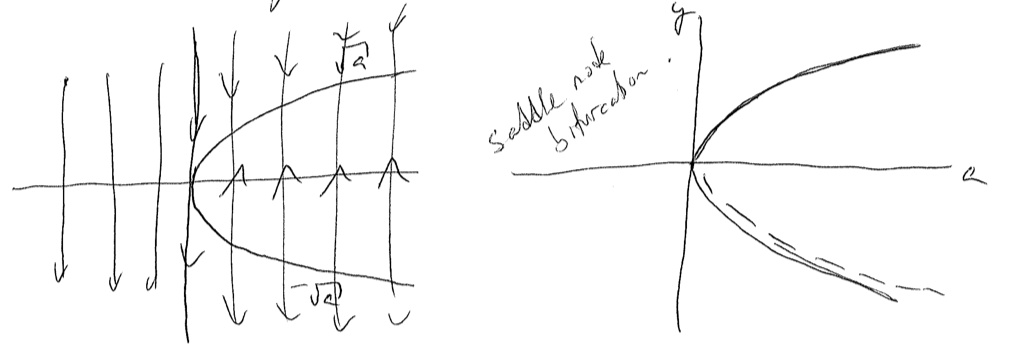 √a
-√a
y
saddle node
bifurcation.
a